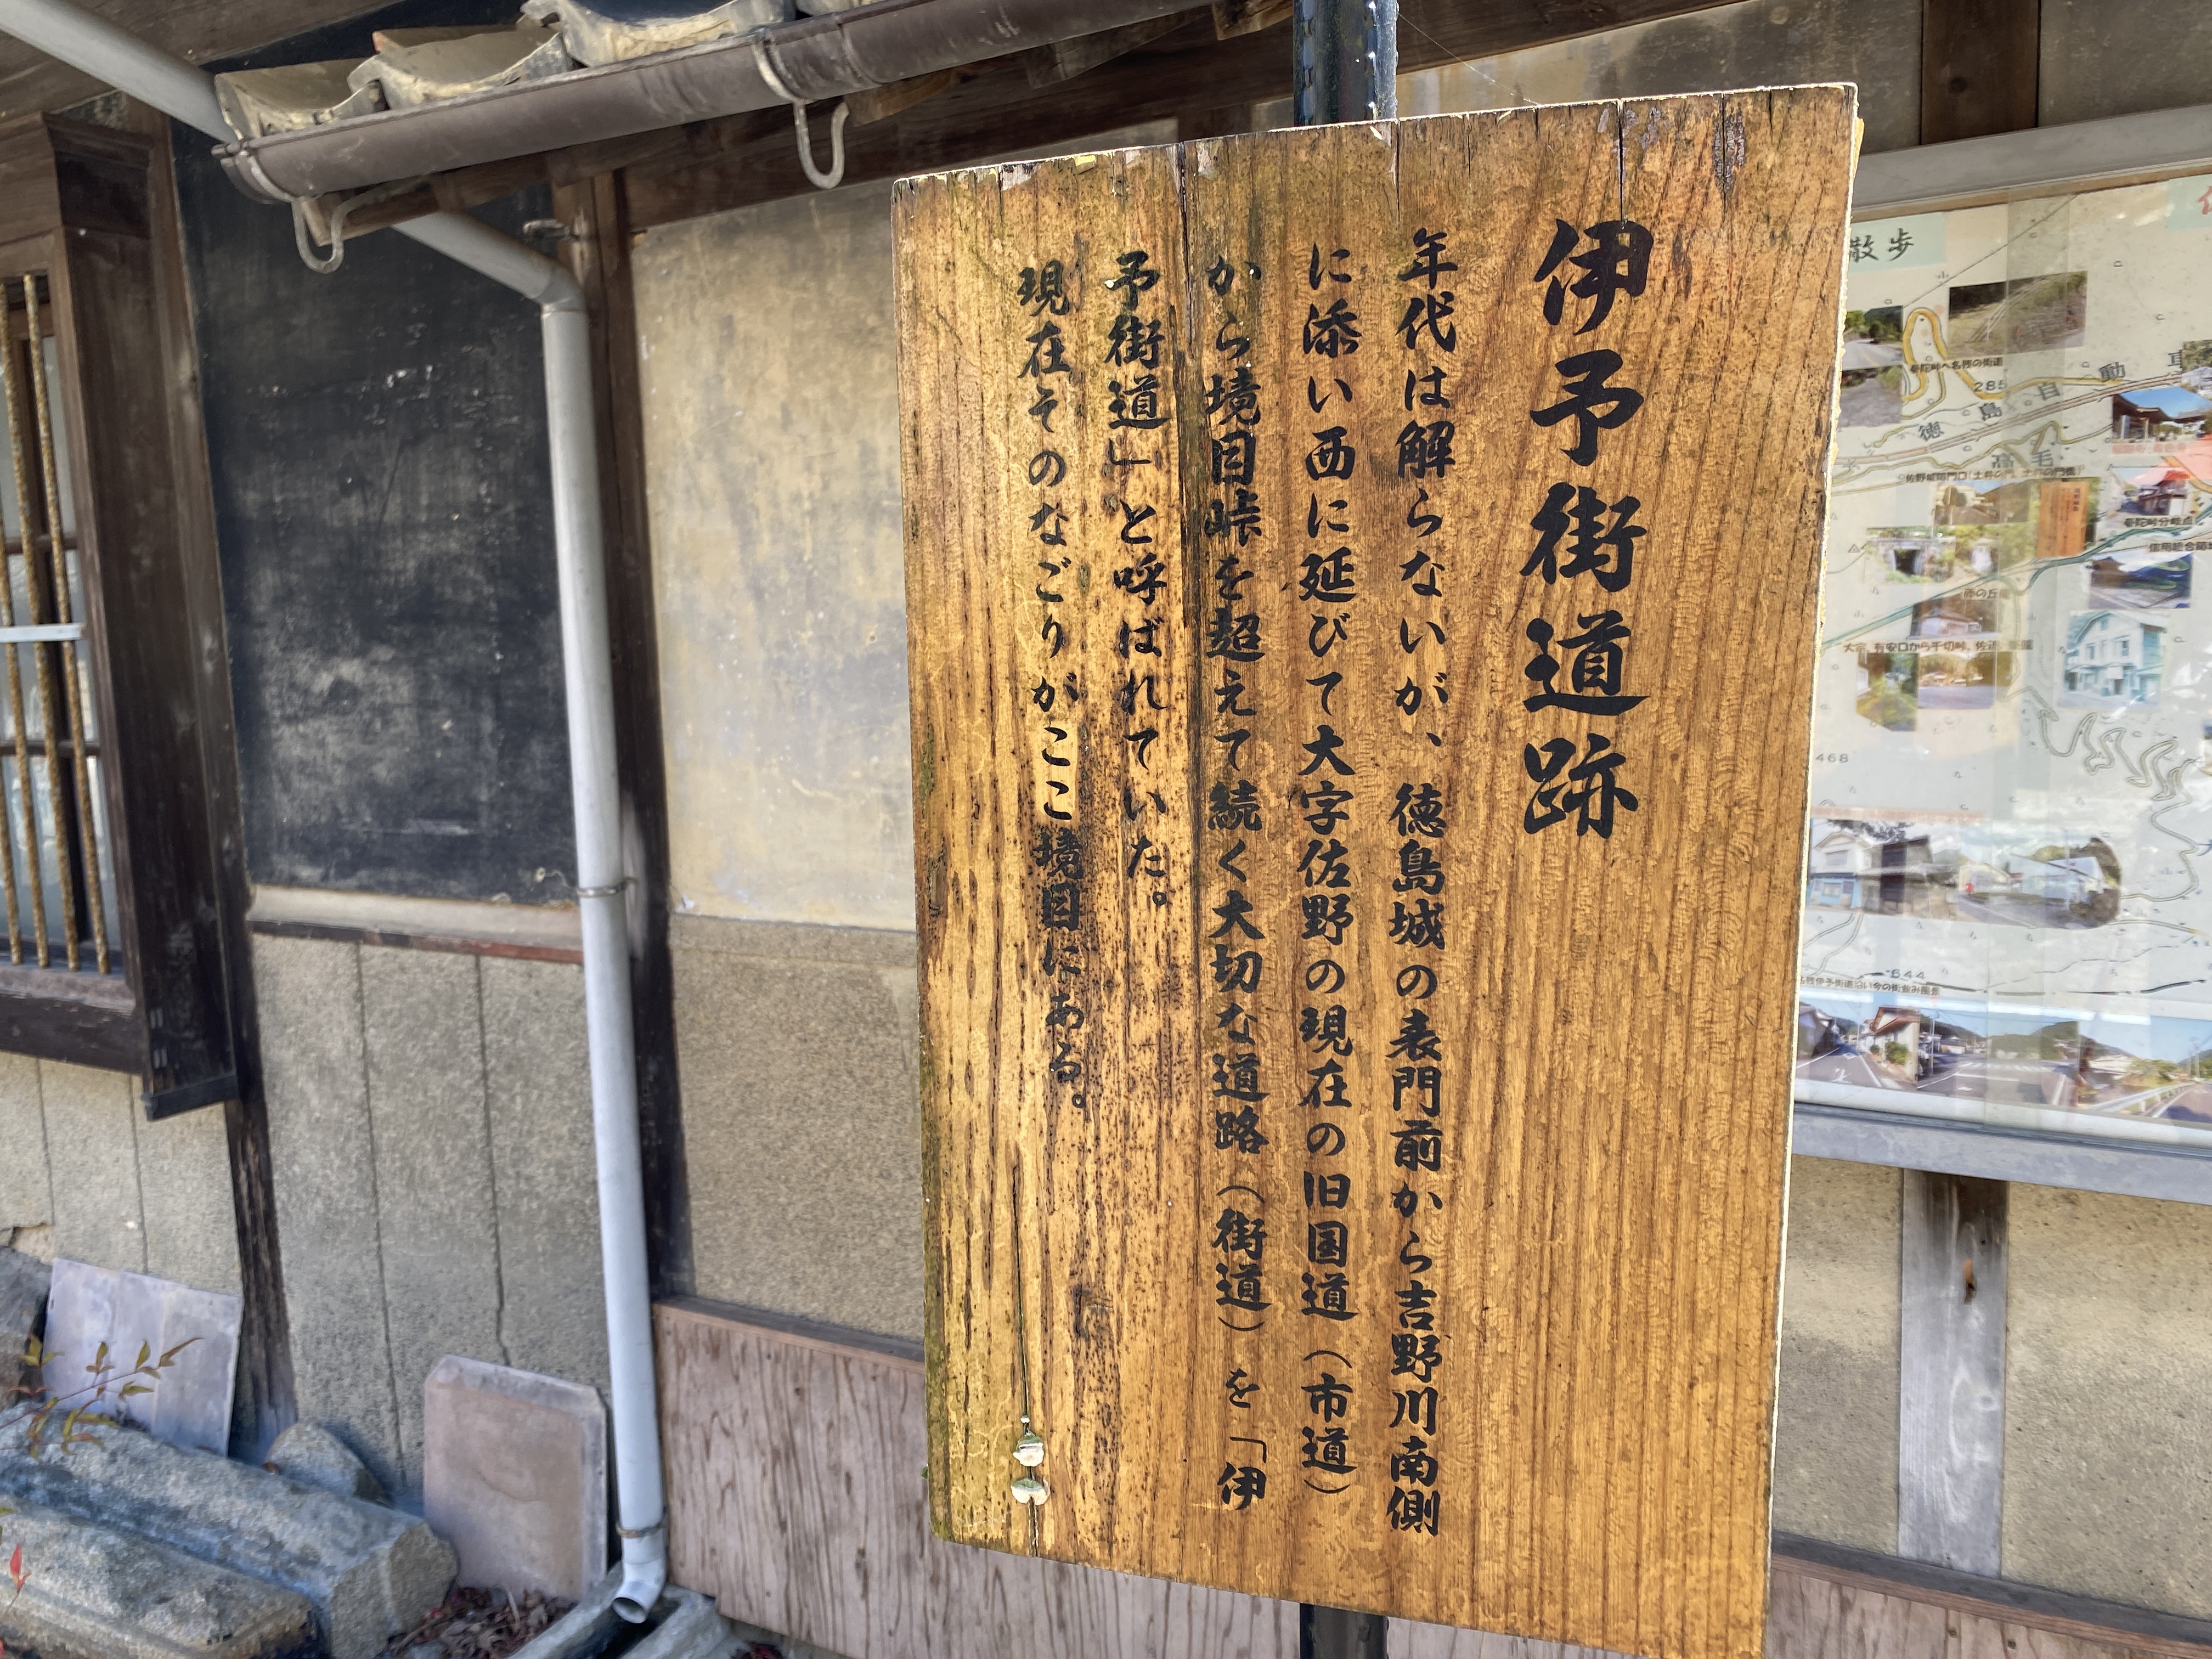 伊予街道跡
年代は解らないが、徳島城の表門前から吉野川南側
に添い西に延びて大字佐野の現在の旧国道（市道）
から境目峠を超えて続く大切な道路（街道）を「伊
予街道」と呼ばれていた。
現在そのなごりがここ境目にある。
散歩
285
徳島自動車
468
644